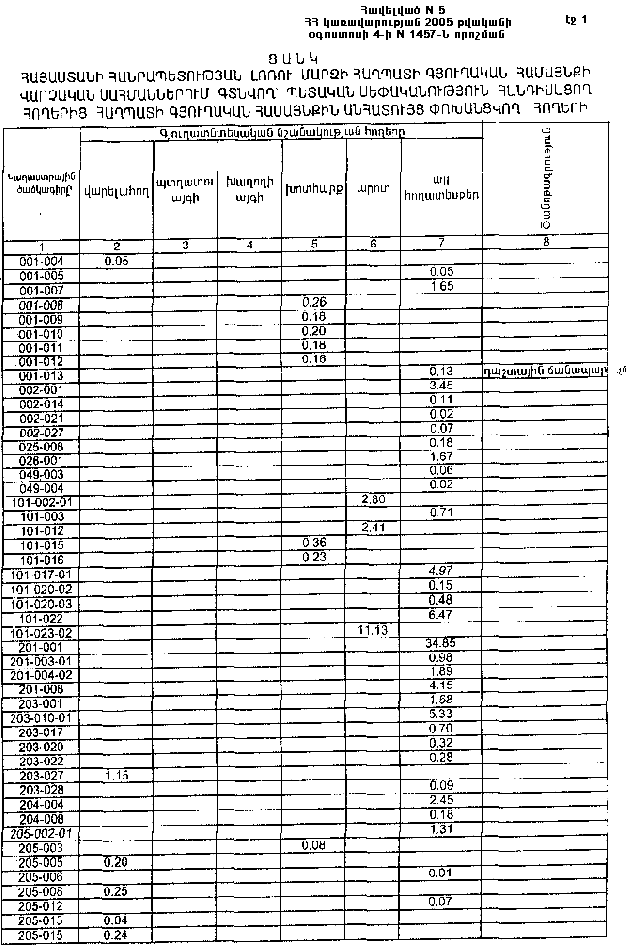 Հավելված N 5
ՀՀ կառավարության 2005 թվականի
օգոստոսի 4-ի N 1457-Ն որոշման
էջ 1
ՑԱՆԿ
ՀԱՅԱՍՏԱՆԻ ՀԱՆՐԱՊԵՏՈՒԹՅԱՆ ԼՈՌՈՒ ՄԱՐԶԻ ՀԱՂՊԱՏԻ ԳՅՈՒՂԱԿԱՆ ՀԱՄԱՅՆՔԻ
ՎԱՐՉԱԿԱՆ ՍԱՀՄԱՆՆԵՐՈՒՄ ԳՏՆՎՈՂ՝ ՊԵՏԱԿԱՆ ՍԵՓԱԿԱՆՈՒԹՅՈՒՆ ՀԱՆԴԻՍԱՑՈՂ
ՀՈՂԵՐԻՑ ՀԱՂՊԱՏԻ ԳՅՈՒՂԱԿԱՆ ՀԱՄԱՅՆՔԻՆ ԱՆՀԱՏՈՒՅՑ ՓՈԽԱՆՑՎՈՂ ՀՈՂԵՐԻ
Կադաստրային ծածկագիրը
Գյուղատնտեսական նշանակության հողերը
վարելահող
պտղատու այգի
խաղողի այգի
խոտհարք
արոտ
այլ հողատեսքեր
Ծանոթագրություն
1 2 3 4 5 6 7 8
001-004 0.05
001-005 0.05
001-007 1.65
001-008 0.26
001-009 0.18
001-010 0.20
001-011 0.18
001-012 0.16
001-013 0.13 դաշտային ճանապար
002-001 3.45
002-014 0.11
002-021 0.02
002-027 0.07
025-008 0.18
028-001 1.67
049-003 0.06
049-004 0.02
101-002-01 2.80
101-003 0.71
101-012 2.41
101-015 0.36
101-016 0.23
101-017-01 4.97
101-020-02 0.15
101-020-03 0.48
101-022 6.47
101-023-02 11.13
201-001 34.85
201-003-01 0.98
201-004-02 1.89
201-008 4.15
203-001 1.68
203-010-01 5.33
203-017 0.70
203-020 0.32
203-022 0.28
203-027 1.15
203-028 0.09
204-004 2.45
204-008 0.18
205-002-01 1.31
205-003 0.08
205-005 0.20
205-006 0.01
205-008 0.25
205-012 0.07
205-013 0.04
205-015 0.24